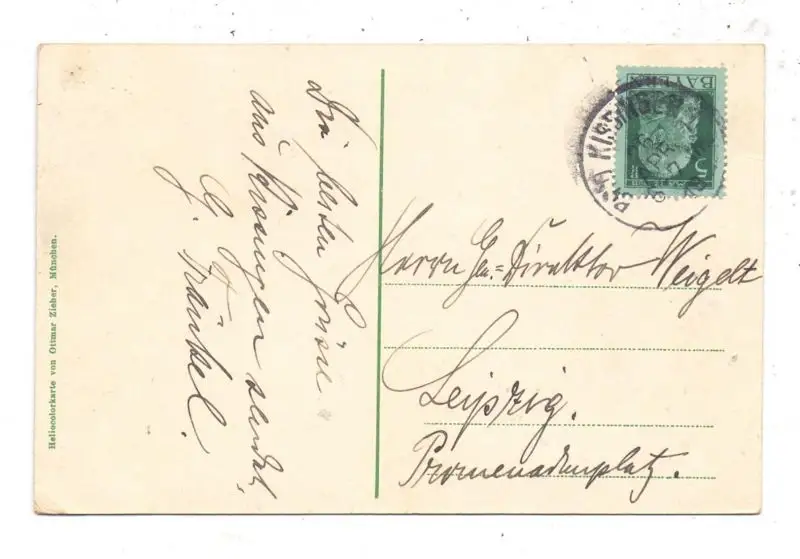 Die besten Grüsse
aus Kissingen sendet,
G. Fränkel.
Herrn Gen.=Direktor Weigelt
Leipzig.
Promenadenplatz.
BAYERN
5
KISSINGEN
Heliocolorkarte von Ottmar Zieher, München.